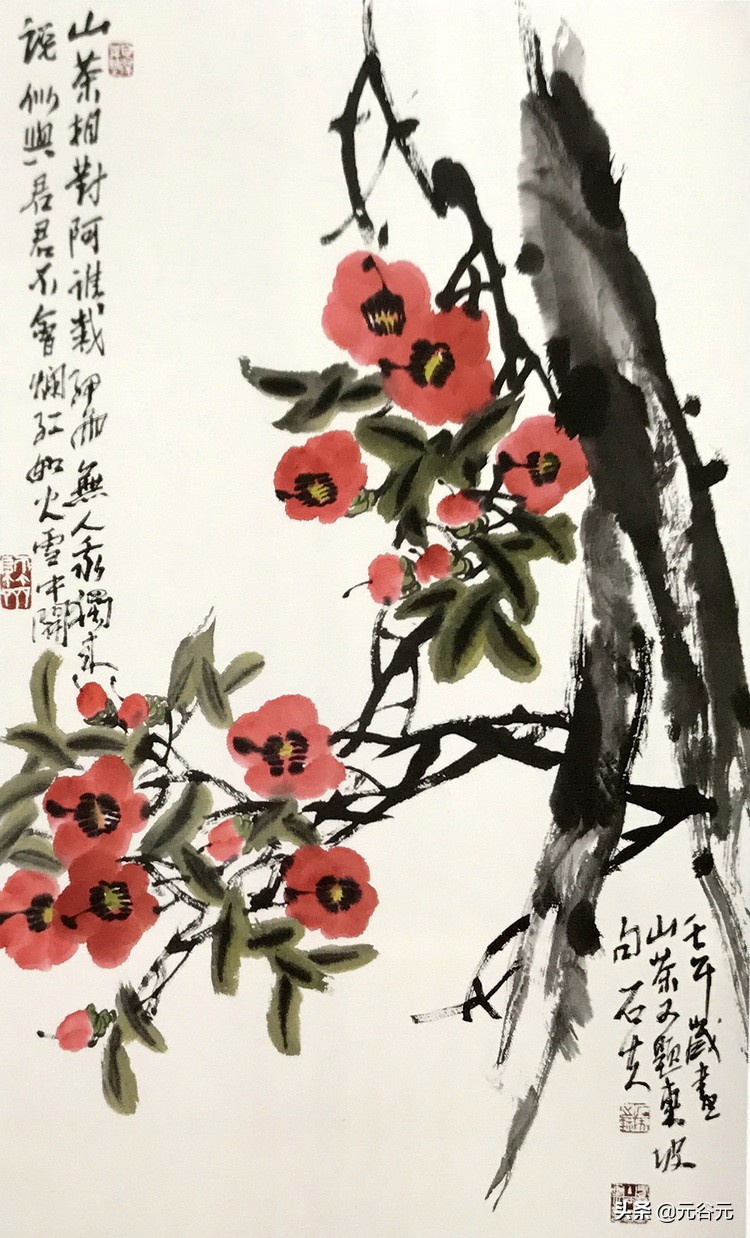 山茶相對阿誰栽細雨無人我獨來
說似與君君不會爛紅如火雪中開
壬午歲畫
山茶又題東坡
句石夫
头条 @元谷元